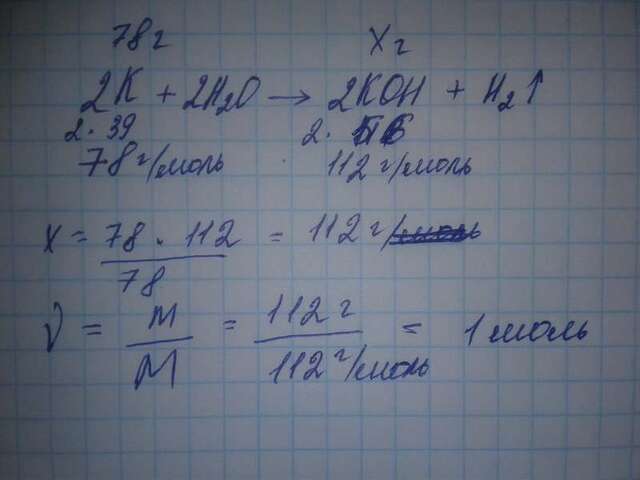 78г Xг
2K + 2H₂O → 2KOH + H₂↑
2·39 2·56
78г/моль 112г/моль
X = 78·112 / 78 = 112г
ν = m / M = 112г / 112г/моль = 1моль